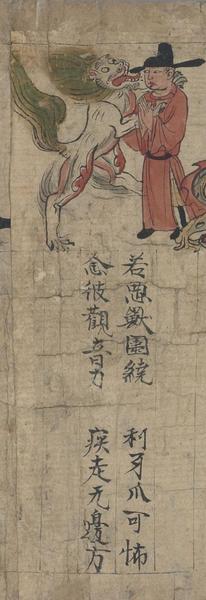 若惡獸圍繞　利牙爪可怖
念彼觀音力　疾走无邊方